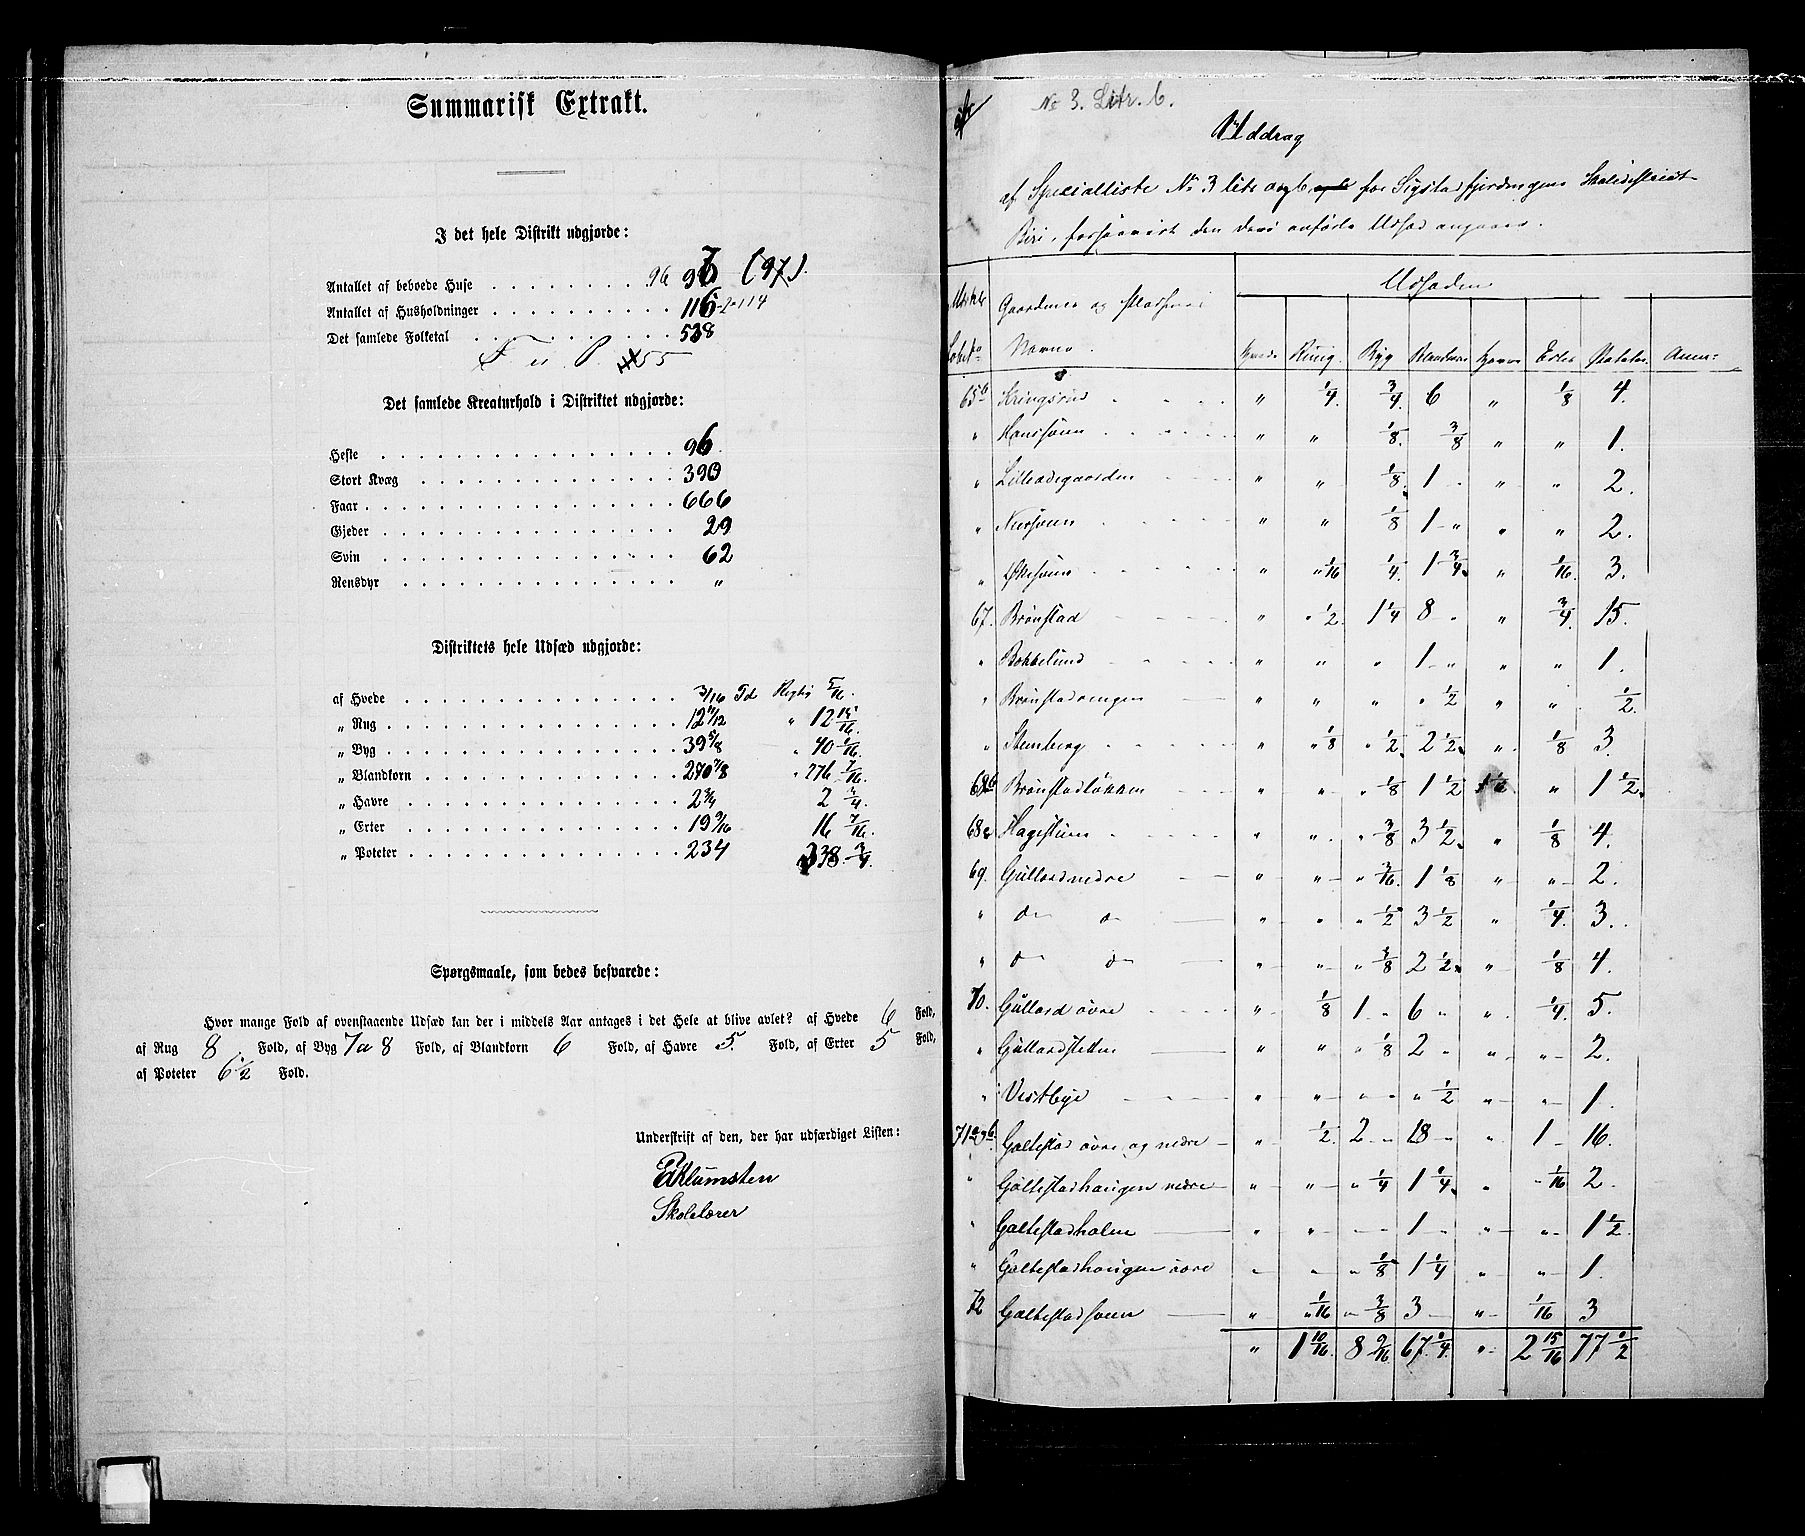 Summarisk Extrakt.
I det hele Distrikt udgjorde:
Antallet af beboede Huse . . . . . . . . 96 97 (97).
Antallet af Husholdninger . . . . . . . . . . 116-2=114
Det samlede Folketal . . . . . . . . . . . 538
Det samlede Kreaturhold i Distriktet udgjorde:
Heste . . . . . . . . . . . . . . . . 96
Stort Kvæg . . . . . . . . . . . . . . 390
Faar . . . . . . . . . . . . . . . . . 666
Gjeder . . . . . . . . . . . . . . . . 29
Svin . . . . . . . . . . . . . . . . . 62
Rensdyr . . . . . . . . . . . . . . . "
Distriktets hele Udsæd udgjorde:
af Hvede . . . . . . . . . . . . . . 3/16 Td Rigtig 5/16.
" Rug . . . . . . . . . . . . . . . 12 11/12 " 12 15/16
" Byg . . . . . . . . . . . . . . . 39 5/8 " 40 1/16.
" Blandkorn . . . . . . . . . . . . 270 7/8 " 276 7/16.
" Havre . . . . . . . . . . . . . . 2 3/4 2 3/4.
" Erter . . . . . . . . . . . . . . 19 9/16 16 7/16.
" Poteter . . . . . . . . . . . . . 234 338 3/4.
Spørgsmaale, som bedes besvarede:
Hvor mange Fold af ovenstaaende Udsæd kan der i middels Aar antages i det Hele at blive avlet? af Hvede 6 Fold,
af Rug 8. Fold, af Byg 7 a 8 Fold, af Blandkorn 6 Fold, af Havre 5. Fold, af Erter 5 Fold,
af Poteter 6 1/2 Fold.
Underskrift af den, der har udfærdiget Listen:
Skolelærer
No 3. Litr. b.
Uddrag
af Specialliste No 3 litr a og b for Sigstadfjerdingens Skoledistrikt
Biri, forsaavidt den deri anførte Udsæd angaaer.
Udsæden
Gaardenes og Pladsenes
Navne. Hvede Rug. Byg Blandkorn Havre Erter Poteter
65b Kringsrud " 1/4. 3/4. 6 " 1/8 4.
" Hanssveen " " 1/8. 3/8 " " 1.
" Lilleødegaarden " " 1/8. 1 " " 2.
" Nersveen " " 1/8 1 " " 2.
" Økssveen " 1/16 1/4. 1 3/4. " 1/16. 3.
67. Brønstad " 1/2. 1 1/4 8 " 3/4. 15.
" Bakkelund " " " 1 " " 1.
" Brønstadengen " " " 1/2 " " 1/2.
" Stenberg " 1/8 1/2. 2 1/2. " 1/8 3
68b Brønstadløkken " " 1/8 1 1/2 1 1/2 " 1 1/2.
68a Hagestuen " " 3/8 3 1/2. " 1/8 4.
69. Gullord nedre " " 3/16. 1 1/8 " " 2.
" do do " " 1/2 3 1/2 " 1/4. 3.
" do do " " 3/8 2 1/2. " 1/8 4.
70. Gullord øvre " 1/8 1 " 6 " " 1/4. 5.
" Gullordsletten " " 1/8 2 " " 2.
" Vestbye " " " 1/2 " " 1.
71a og b. Galtestad øvre og nedre " 1/2. 2 18 " 1 16.
" Galtestadhaugen nedre " " 1/4 1 1/4. " 1/16 2.
" Galtestadholen " " " 1 " " 1 1/2.
" Galtestadhaugen øvre " " 1/8 1 1/4 " " 1.
72 Galtestadsveen " 1/16 3/8 3 " 1/16 3
" 1 10/16. 8 9/16 67 1/4. " 2 15/16 77 1/2